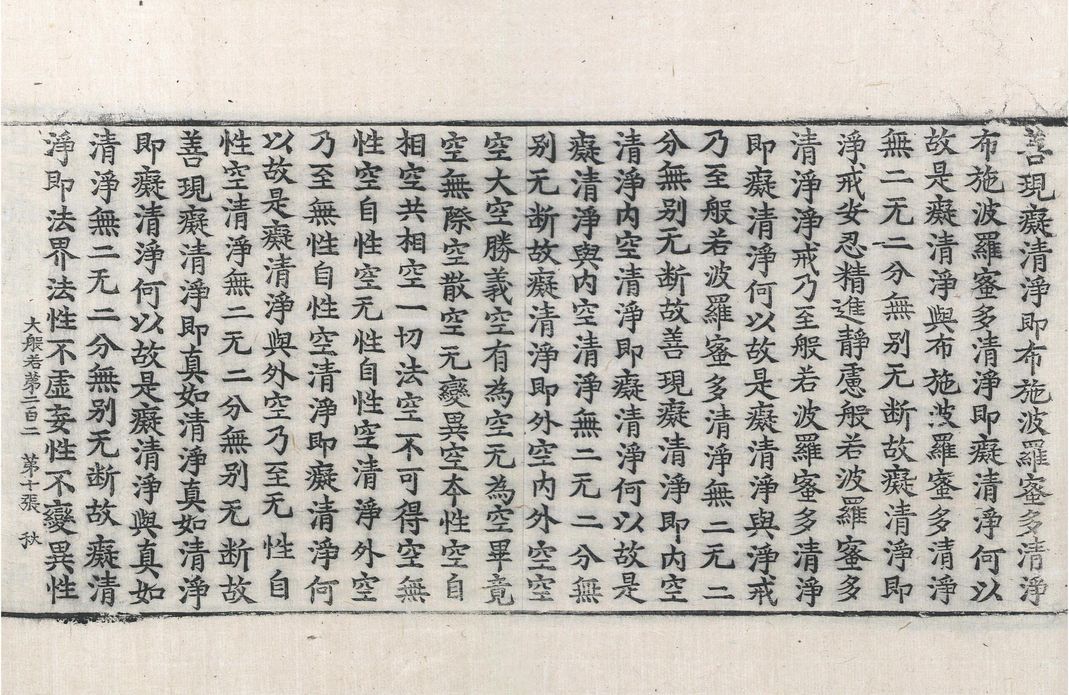 善現癡清淨即布施波羅蜜多清淨
布施波羅蜜多清淨即癡清淨何以
故是癡清淨與布施波羅蜜多清淨
無二无二分無别无断故癡清淨即
淨戒安忍精進靜慮般若波羅蜜多
清淨淨戒乃至般若波羅蜜多清淨
即癡清淨何以故是癡清淨與淨戒
乃至般若波羅蜜多清淨無二无二
分無别无断故善現癡清淨即内空
清淨内空清淨即癡清淨何以故是
癡清淨與内空清淨無二无二分無
别无断故癡清淨即外空内外空空
空大空勝義空有為空无為空畢竟
空無際空散空无變異空夲性空自
相空共相空一切法空不可得空無
性空自性空无性自性空清淨外空
乃至無性自性空清淨即癡清淨何
以故是癡清淨與外空乃至无性自
性空清淨無二无二分無别无断故
善現癡清淨即真如清淨真如清淨
即癡清淨何以故是癡清淨與真如
清淨無二无二分無别无断故癡清
淨即法界法性不虛妄性不變異性
大般若第二百二 第十張 秋